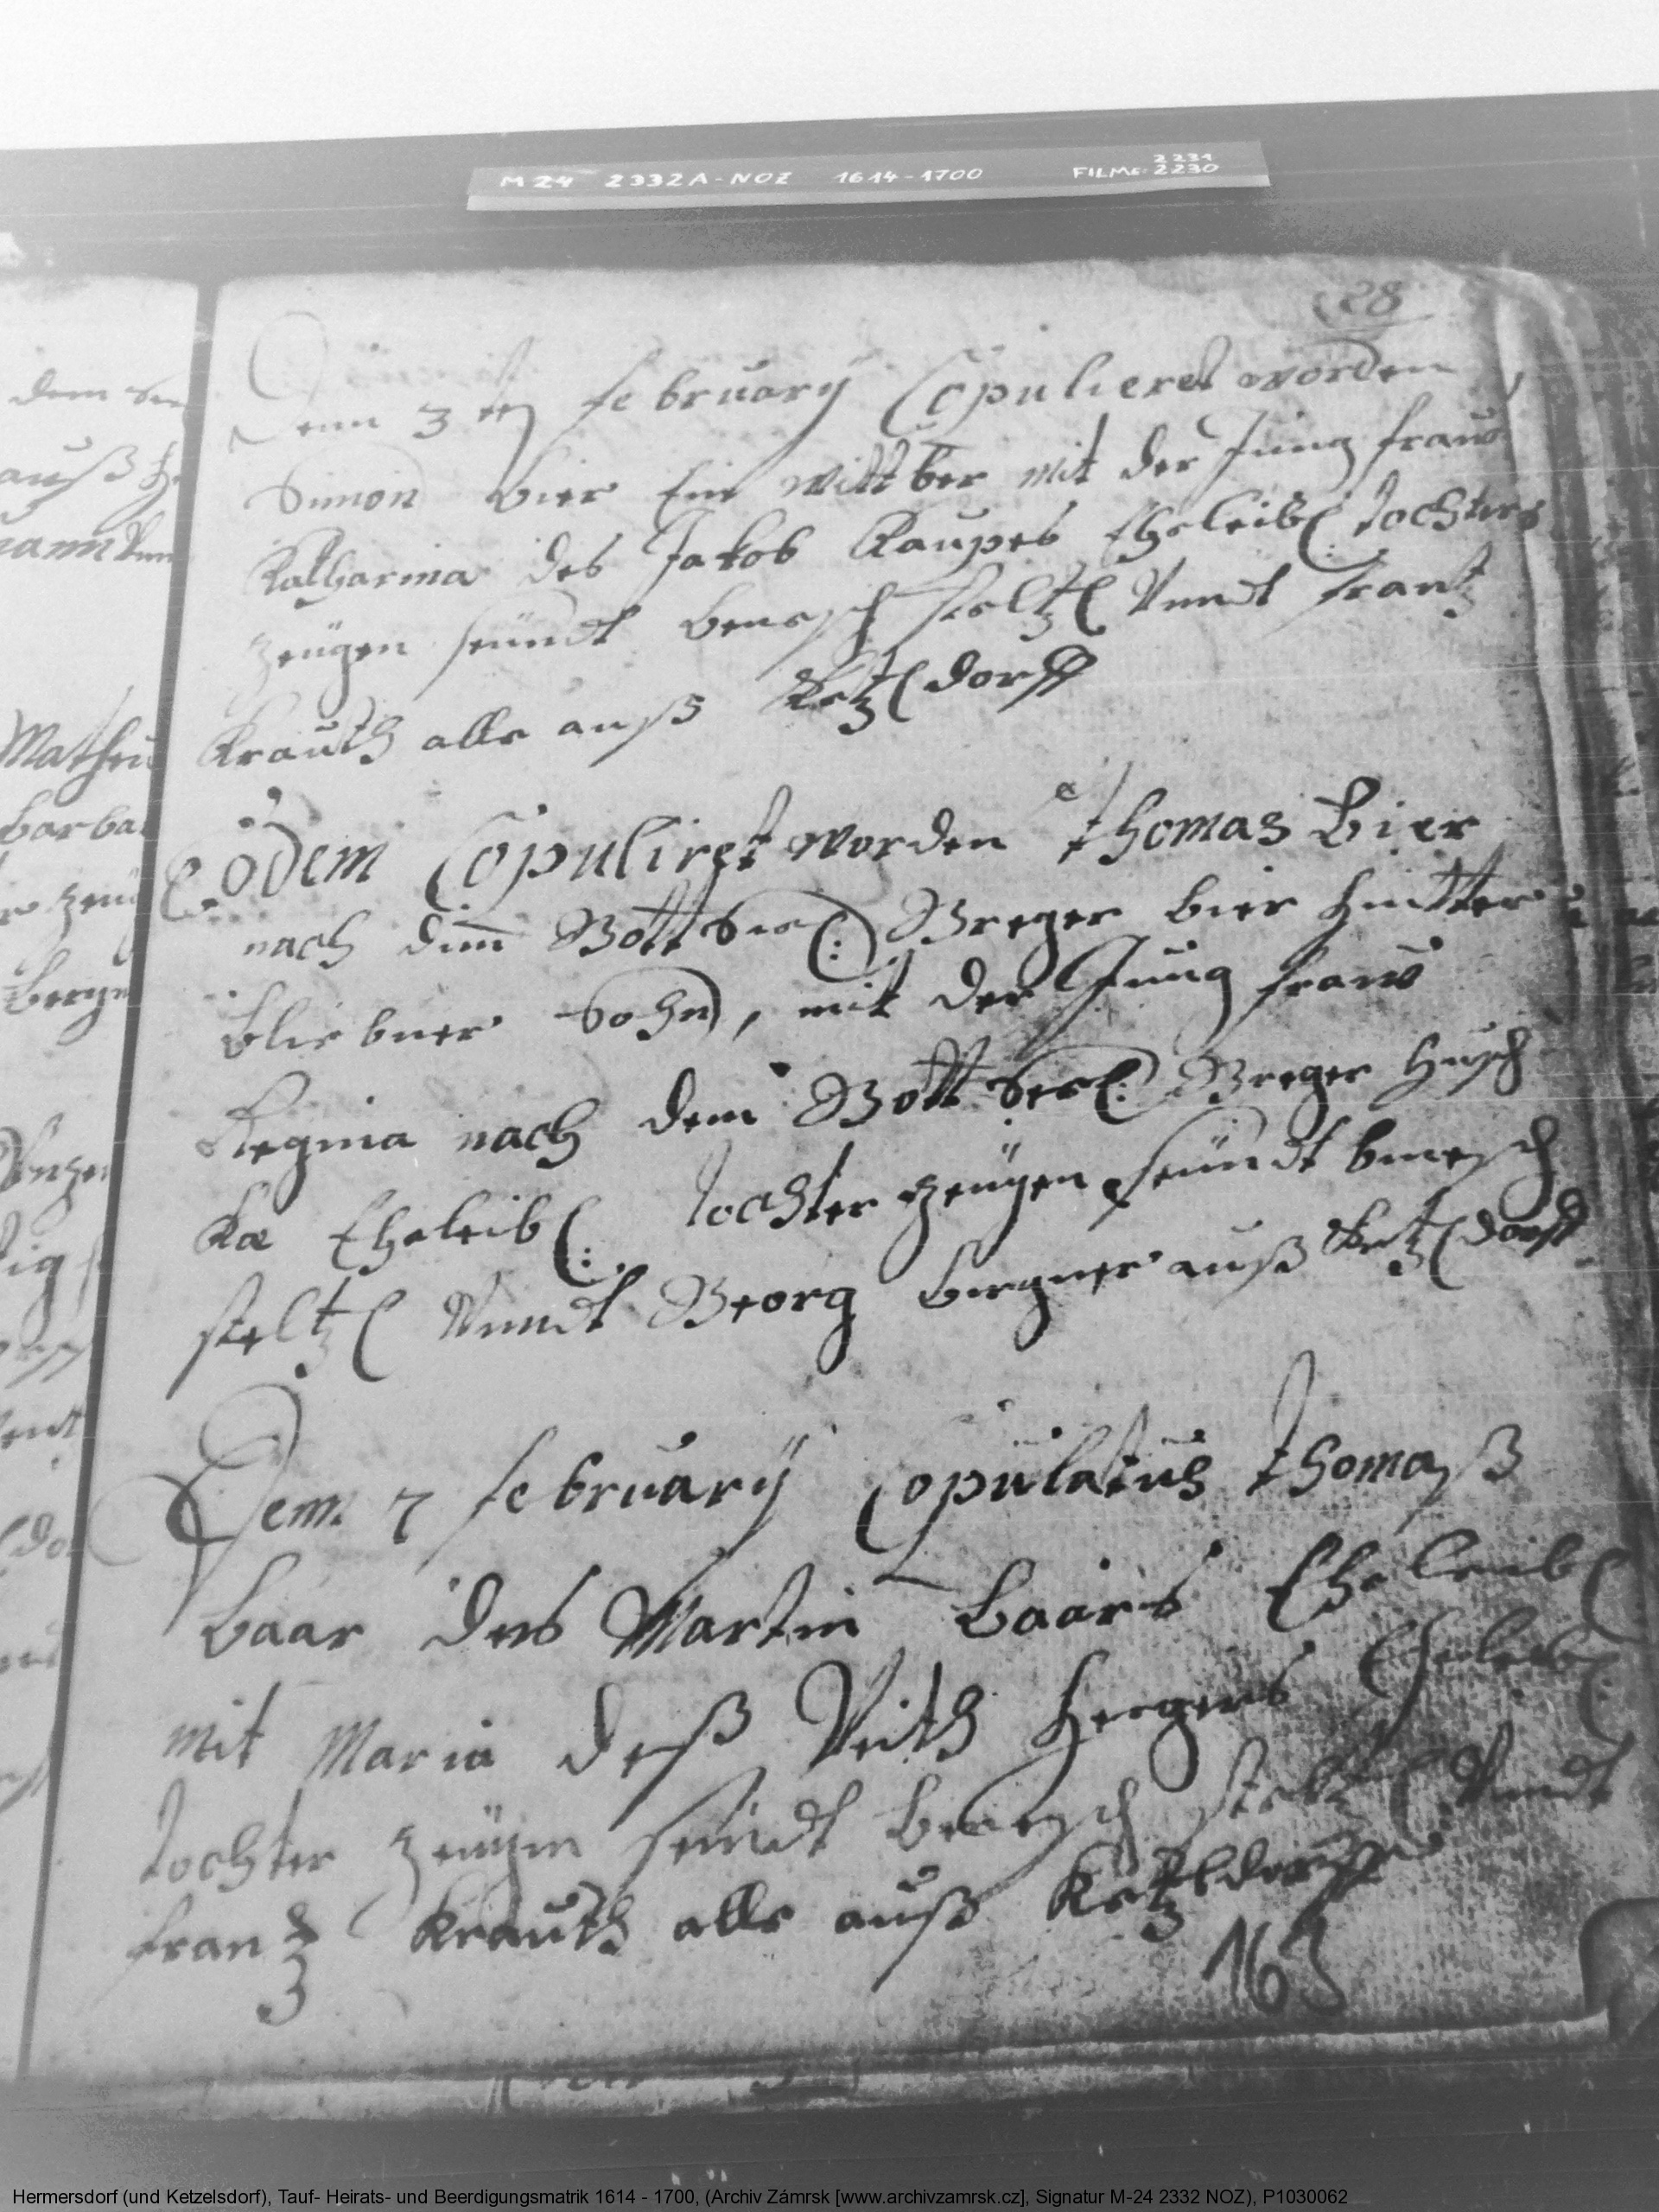 M 24 2332A-NOZ 1614-1700 FILME: 2231 2230
28
Denn 3 ten february Copulieret worden
Simon bier Ein wittber mit der Jung fraw
Katharina des Jakob Raupes Eheleibl: tochter
zeügen seündt benesch steltzl Unndt frantz
Krauth alle auß Ketzldorff
Eodem Copuliret worden Thomas Bier
nach dem Gott Seel: Greger bier hintter
bliebner Sohn, mit der Jung fraw
Regina nach dem Gott Seel: Greger Husch
ka Eheleibl: tochter zeügen seündt benesch
steltzl Unndt Georg bergner auß Ketzldorff
Dem 7 february Copulatus Thomaß
baar des Martin baars Eheleibl
mit Maria deß Veith hergers Eheleibl
tochter zeügen seündt benesch steltzl Unndt
frantz Krauth alle auß Ketzldorff
163
dem
Matheu
barba
Hermersdorf (und Ketzelsdorf), Tauf- Heirats- und Beerdigungsmatrik 1614 - 1700, (Archiv Zámrsk [www.archivzamrsk.cz], Signatur M-24 2332 NOZ), P1030062